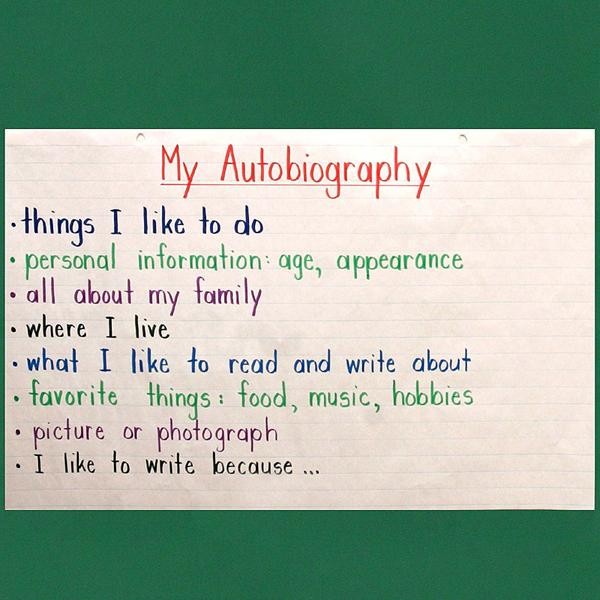 My Autobiography
· things I like to do
· personal information: age, appearance
· all about my family
· where I live
· what I like to read and write about
· favorite things: food, music, hobbies
· picture or photograph
· I like to write because ...